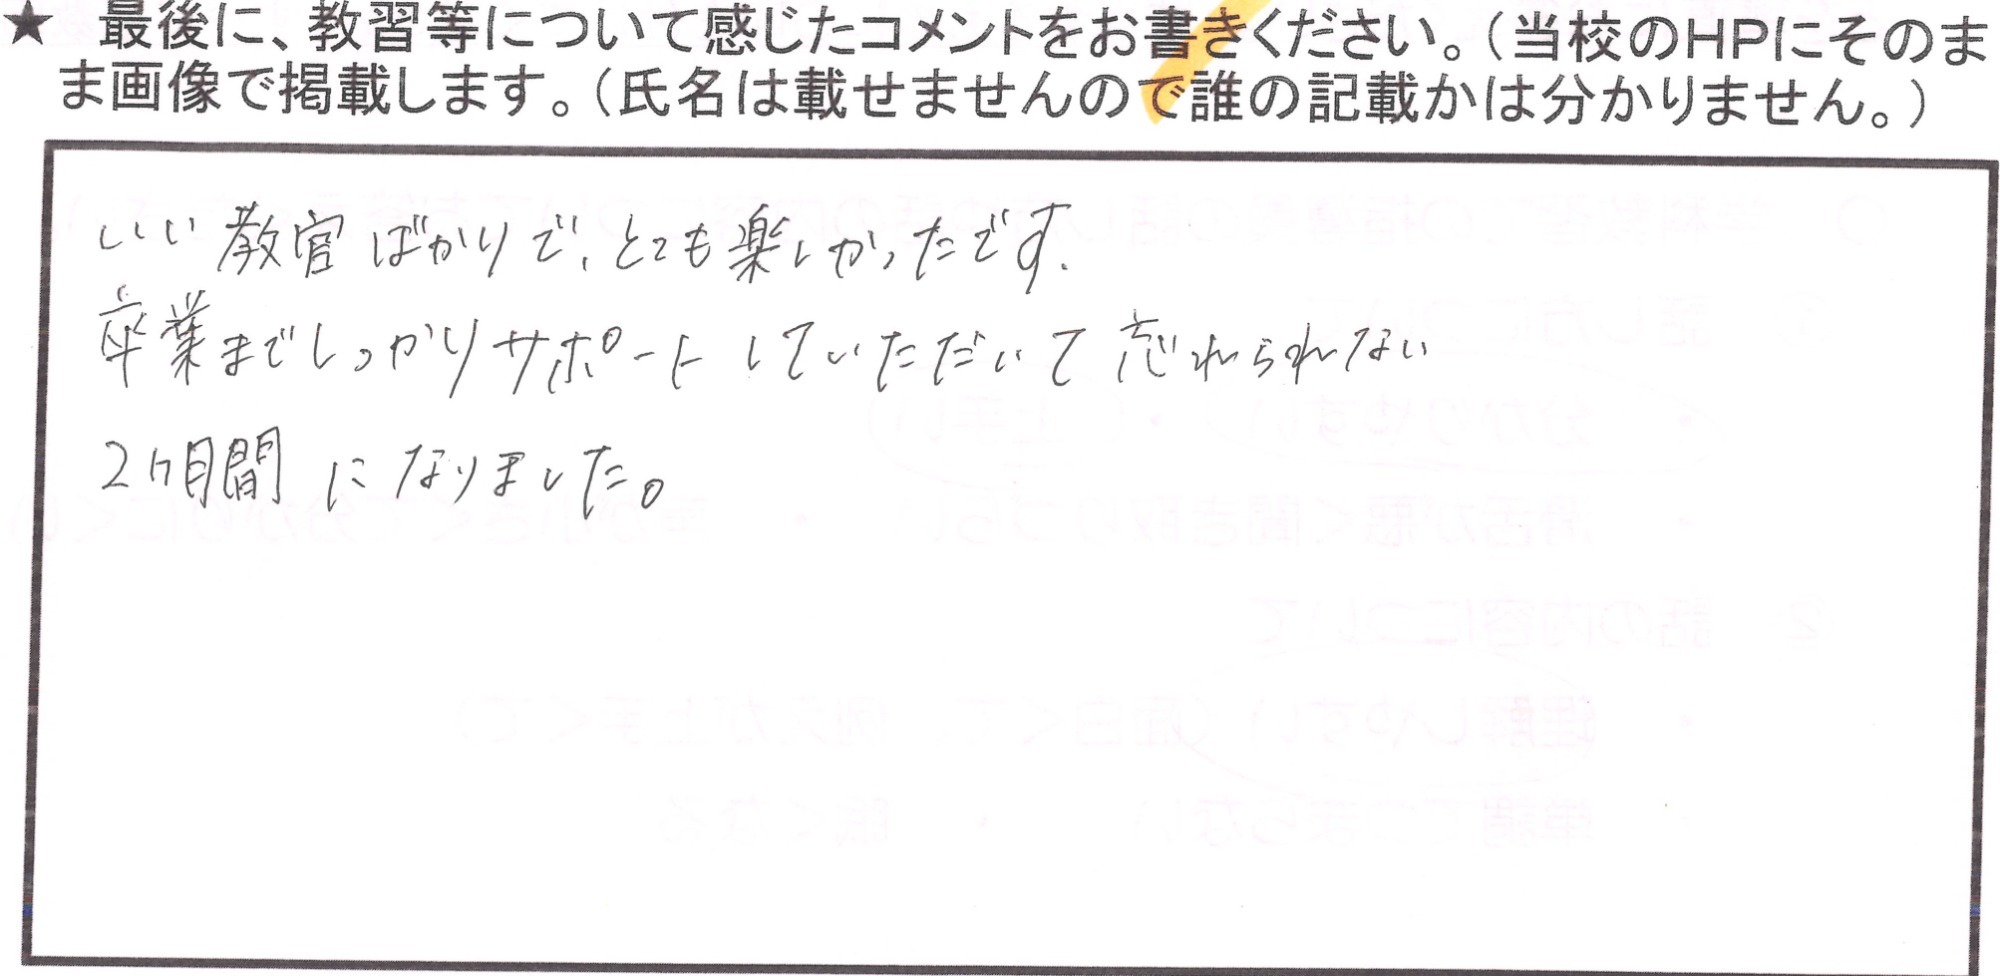 ★ 最後に、教習等について感じたコメントをお書きください。(当校のHPにそのま
ま画像で掲載します。(氏名は載せませんので誰の記載かは分かりません。)
いい教官ばかりで、とても楽しかったです.
卒業までしっかりサポートしていただいて忘れられない
2ヶ月間になりました。